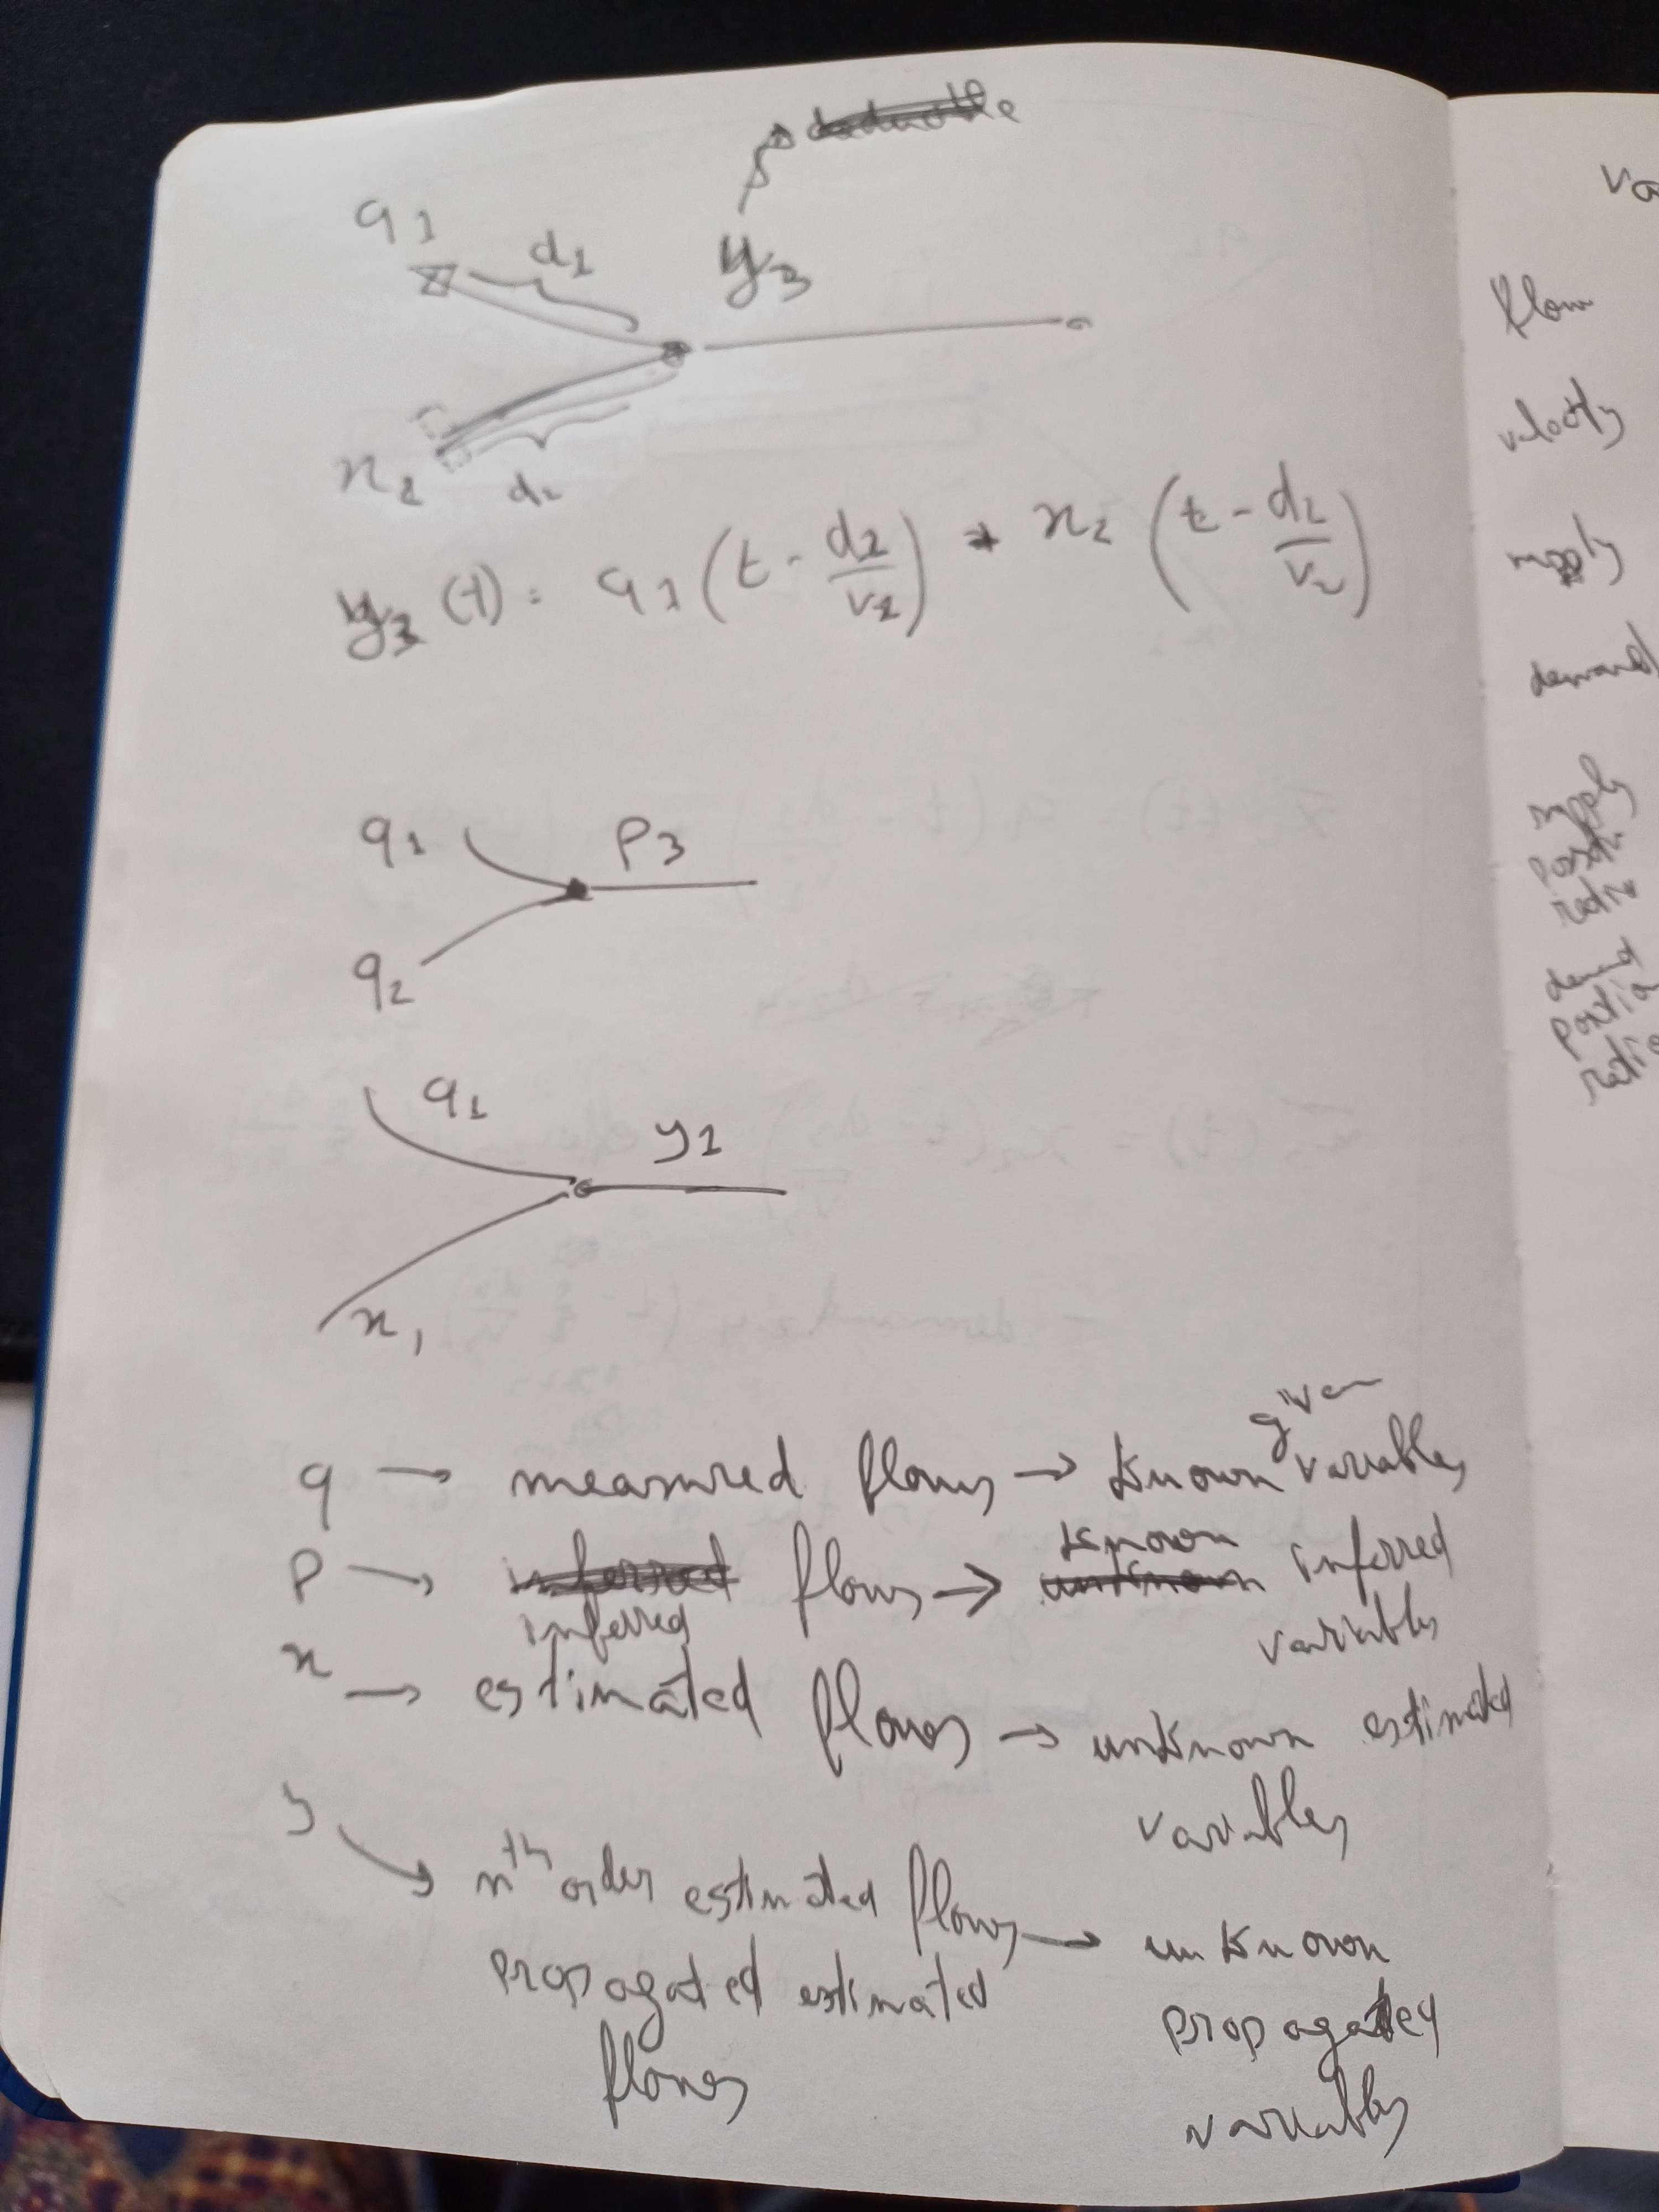 q1
d1
y3
x2
d2
y3 (t) = q1 (t - d1/v1) + x2 (t - d2/v2)
q1
p3
q2
q1
y1
x1
given
q → measured flows → known variables
known
p → inferred flows → unknown inferred
inferred
variables
x → estimated flows → unknown estimated
variables
y → nth order estimated flows → unknown
propagated estimated
propagated
flows
variables
flow
velocity
supply
demand
supply
portion
ratio
demand
portio
ratio